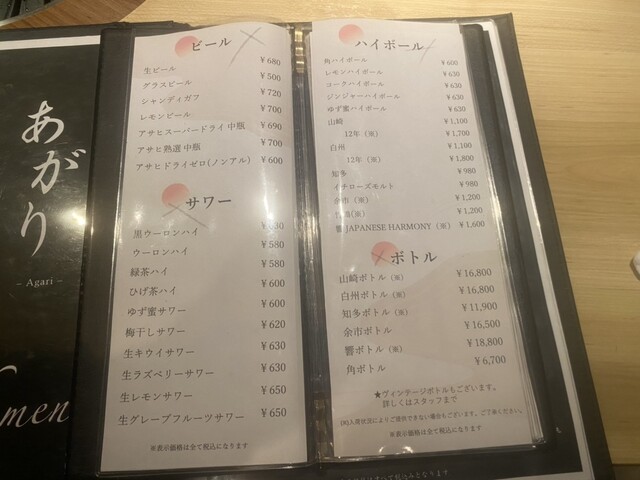 あがり
- Agari -
men
ビール
生ビール ￥680
グラスビール ￥500
シャンディガフ ￥720
レモンビール ￥700
アサヒスーパードライ 中瓶 ￥690
アサヒ熟選 中瓶 ￥700
アサヒドライゼロ(ノンアル) ￥600
サワー
黒ウーロンハイ
ウーロンハイ ￥580
緑茶ハイ ￥580
ひげ茶ハイ ￥600
ゆず蜜サワー ￥600
梅干しサワー ￥620
生キウイサワー ￥630
生ラズベリーサワー ￥630
生レモンサワー ￥650
生グレープフルーツサワー ￥650
※表示価格は全て税込になります
ハイボール
角ハイボール ￥600
レモンハイボール ￥630
コークハイボール ￥630
ジンジャーハイボール ￥630
ゆず蜜ハイボール ￥630
山崎 ￥1,100
12年（※） ￥1,700
白州 ￥1,100
12年（※） ￥1,800
知多 ￥980
イチローズモルト ￥980
余市（※） ￥1,200
（※） ￥1,200
響 JAPANESE HARMONY（※） ￥1,600
ボトル
山崎ボトル（※） ￥16,800
白州ボトル（※） ￥16,800
知多ボトル（※） ￥11,900
余市ボトル ￥16,500
響ボトル（※） ￥18,800
角ボトル ￥6,700
★ヴィンテージボトルもございます。
詳しくはスタッフまで
(※)入荷状況によりご提供できない場合もございます。ご了承ください。
※表示価格は全て税込になります